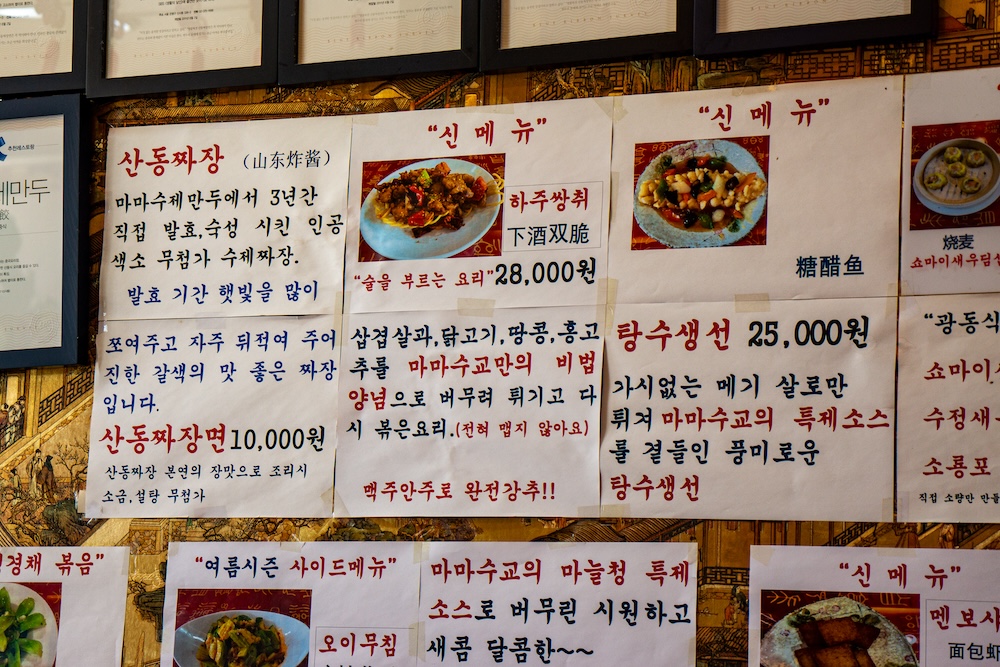 추천레스토랑
제만두
산동짜장 (山东炸酱)
마마수제만두에서 3년간
직접 발효,숙성 시킨 인공
색소 무첨가 수제짜장.
발효 기간 햇빛을 많이
쪼여주고 자주 뒤적여 주어
진한 갈색의 맛 좋은 짜장
입니다.
산동짜장면 10,000원
산동짜장 본연의 장맛으로 조리시
소금,설탕 무첨가
"신 메 뉴"
하주쌍취
下酒双脆
"술을 부르는 요리" 28,000원
삽겹살과,닭고기,땅콩,홍고
추를 마마수교만의 비법
양념으로 버무려 튀기고 다
시 볶은요리.(전혀 맵지 않아요)
맥주안주로 완전강추!!
"신 메 뉴"
糖醋鱼
탕수생선 25,000원
가시없는 메기 살로만
튀겨 마마수교의 특제소스
를 곁들인 풍미로운
탕수생선
烧麦
쇼마이새우딤섬
"광동식
쇼마이
수정새
소룡포
직접 소량만 만들
경채 볶음"
"여름시즌 사이드메뉴"
오이무침
마마수교의 마늘청 특제
소스로 버무린 시원하고
새콤 달콤한~~
"신 메 뉴"
멘보샤
面包虾